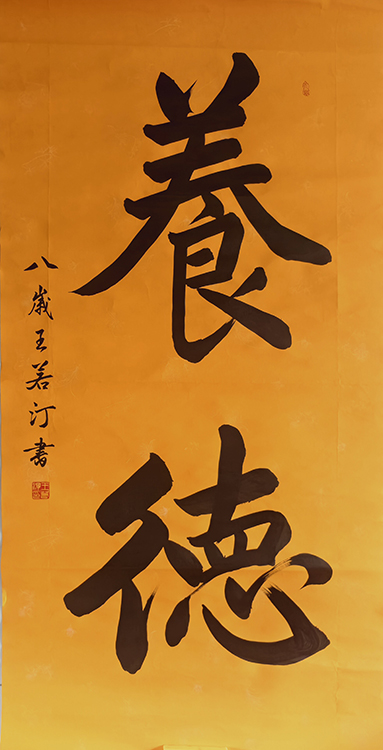 養德
八歲王若汀書